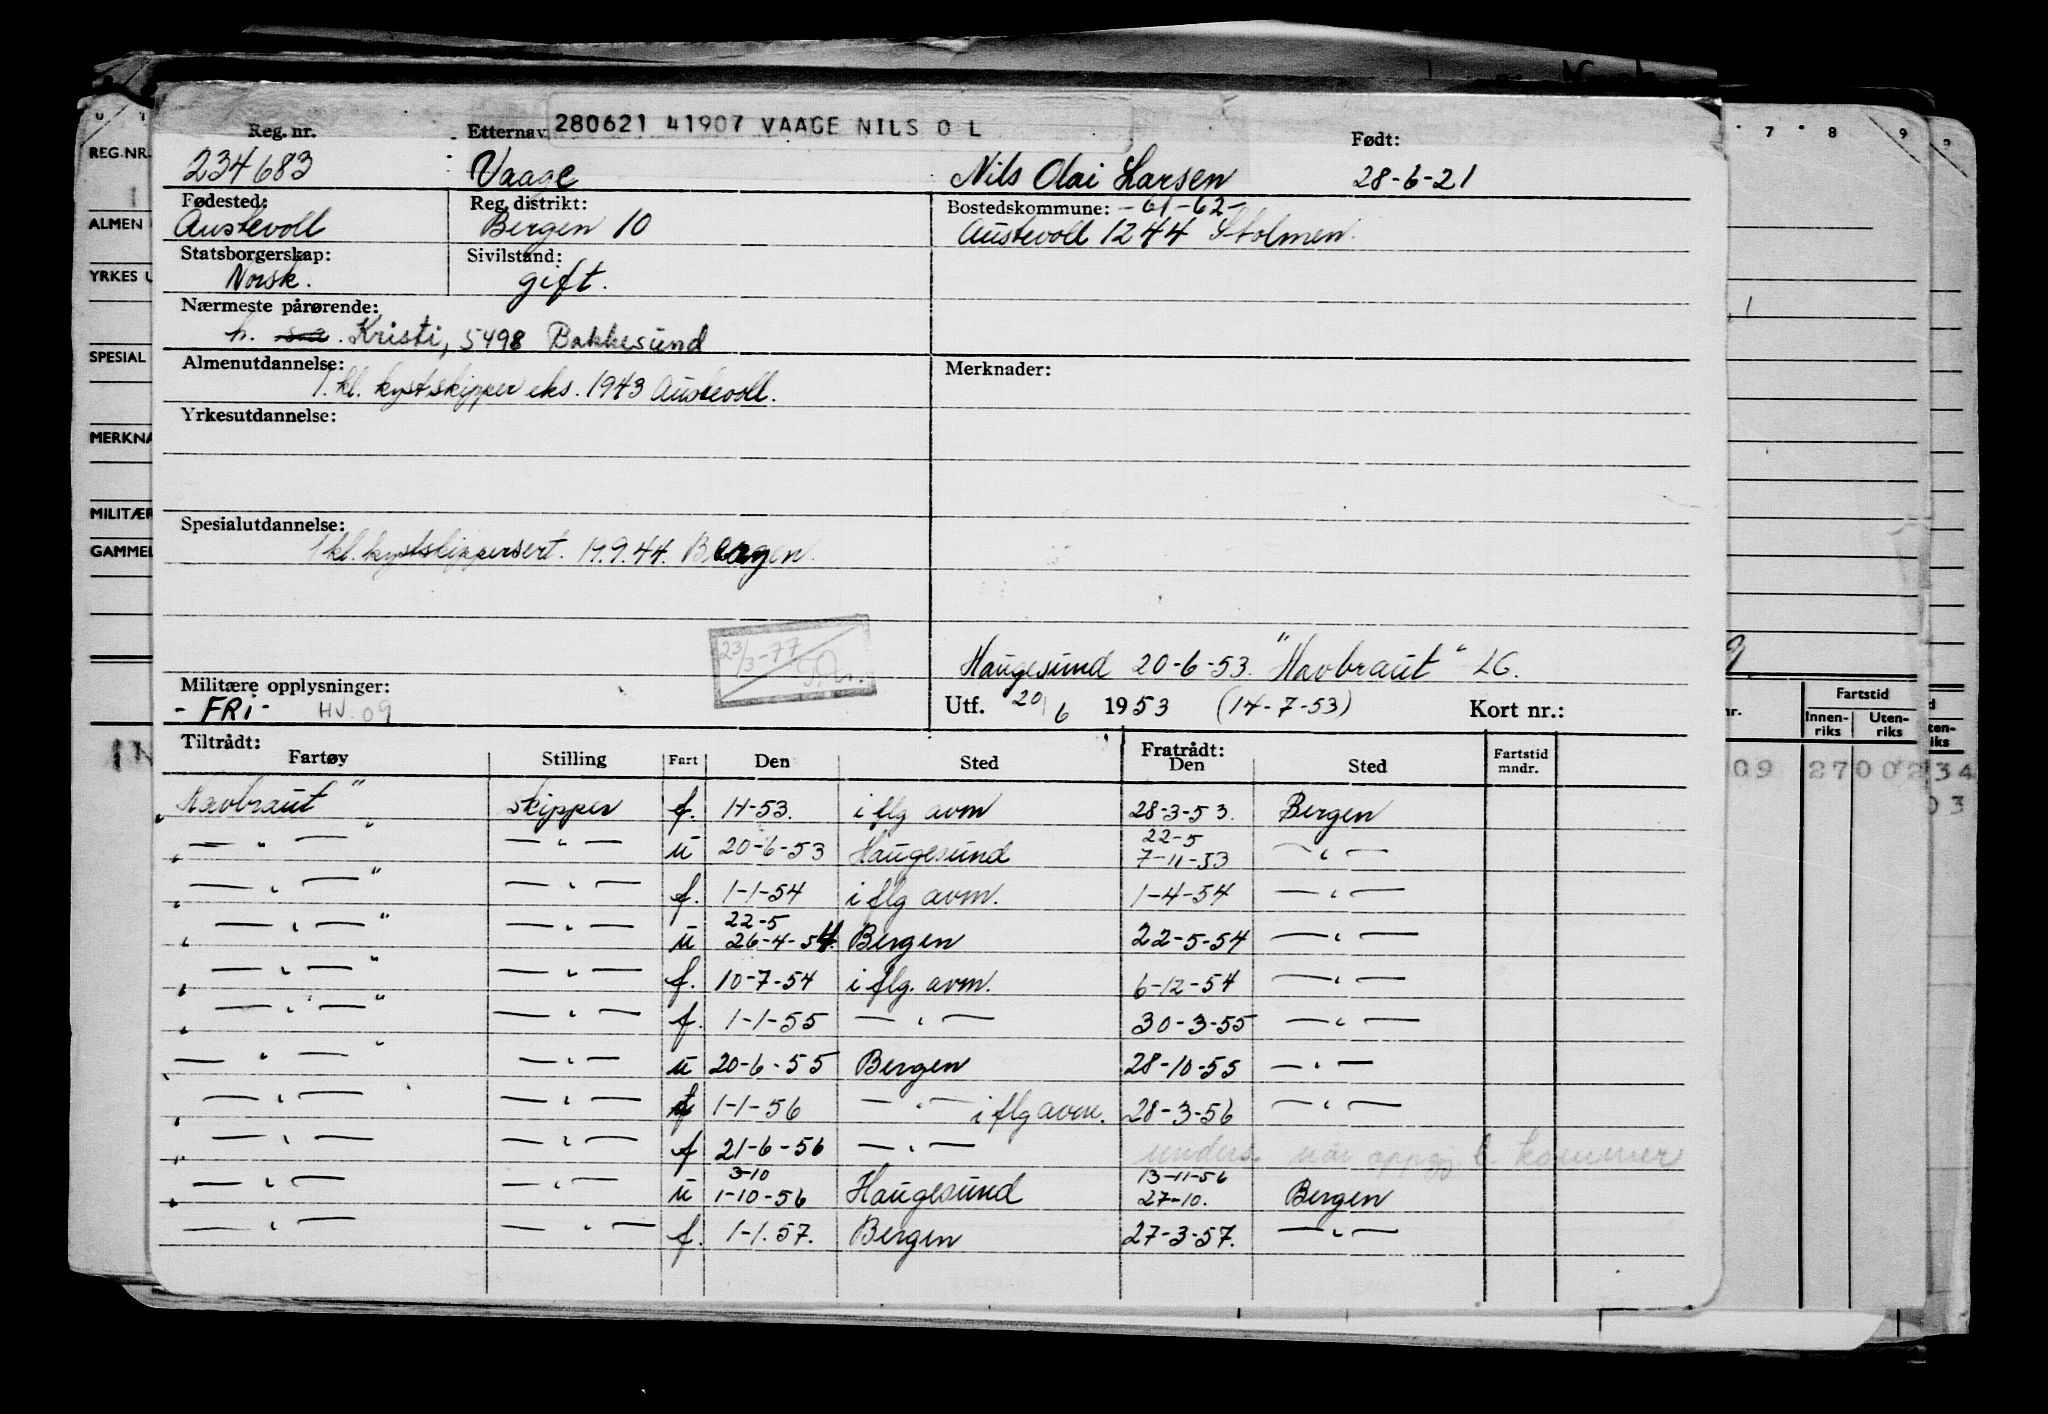 280621 41907 VAAGE NILS O L
Reg. nr. Etternav. Født:
234683 Vaage Nils Olai Larsen 28-6-21
Fødested: Reg. distrikt: Bostedskommune: -61-62-
Austevoll Bergen 10 Austevoll 1244 Stolmen.
Statsborgerskap: Sivilstand:
Norsk. gift.
Nærmeste pårørende:
h. Kristi, 5498 Bakkesund
Almenutdannelse: Merknader:
1. kl. kystskipper eks. 1943 Austevoll.
Yrkesutdannelse:
Spesialutdannelse:
1 kl. kystskippersert. 19.9.44. Bergen.
23/3-77
Haugesund 20-6-53. "Havbraut" LG.
Militære opplysninger: Utf. 20/6 1953 (14-7-53) Kort nr.:
- FRI - HV 09
Tiltrådt: Fratrådt:
Fartøy Stilling Fart Den Sted Den Sted Fartstid mndr.
"Havbraut" skipper f. 1-1-53. i flg avm 28-3-53. Bergen
" — " — " — " — u 20-6-53 Haugesund 22-5 7-11-53 — " —
" — " — " — " — f. 1-1-54 i flg avm. 1-4-54 — " —
" — " — " — " — u 22-5 26-4-54. Bergen 22-5-54 — " —
" — " — " — " — f. 10-7-54 i flg. avm. 6-12-54 — " —
" — " — " — " — f. 1-1-55 — " — 30-3-55 — " —
" — " — " — " — u 20-6-55 Bergen 28-10-55 — " —
" — " — — " — f 1-1-56 — " — i flg avm. 28-3-56 — " —
" — " — — " — f 21-6-56 — " — unders. når oppg kommer
" — " — — " — u 3-10 1-10-56 Haugesund 13-11-56 27-10. Bergen
— " — — " — f. 1-1.57. Bergen 27-3-57. — " —
REG.NR.
ALMEN
YRKES U
SPESIAL
MERKNA
MILITÆR
GAMMEL
7 8 9
Fartstid
nr. Innen-riks Uten-riks
09 27 002 34
03